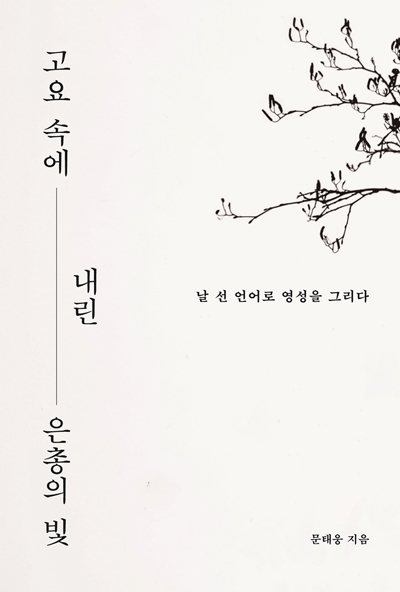 고요 속에
내린
은총의 빛
날 선 언어로 영성을 그리다
문태웅 지음